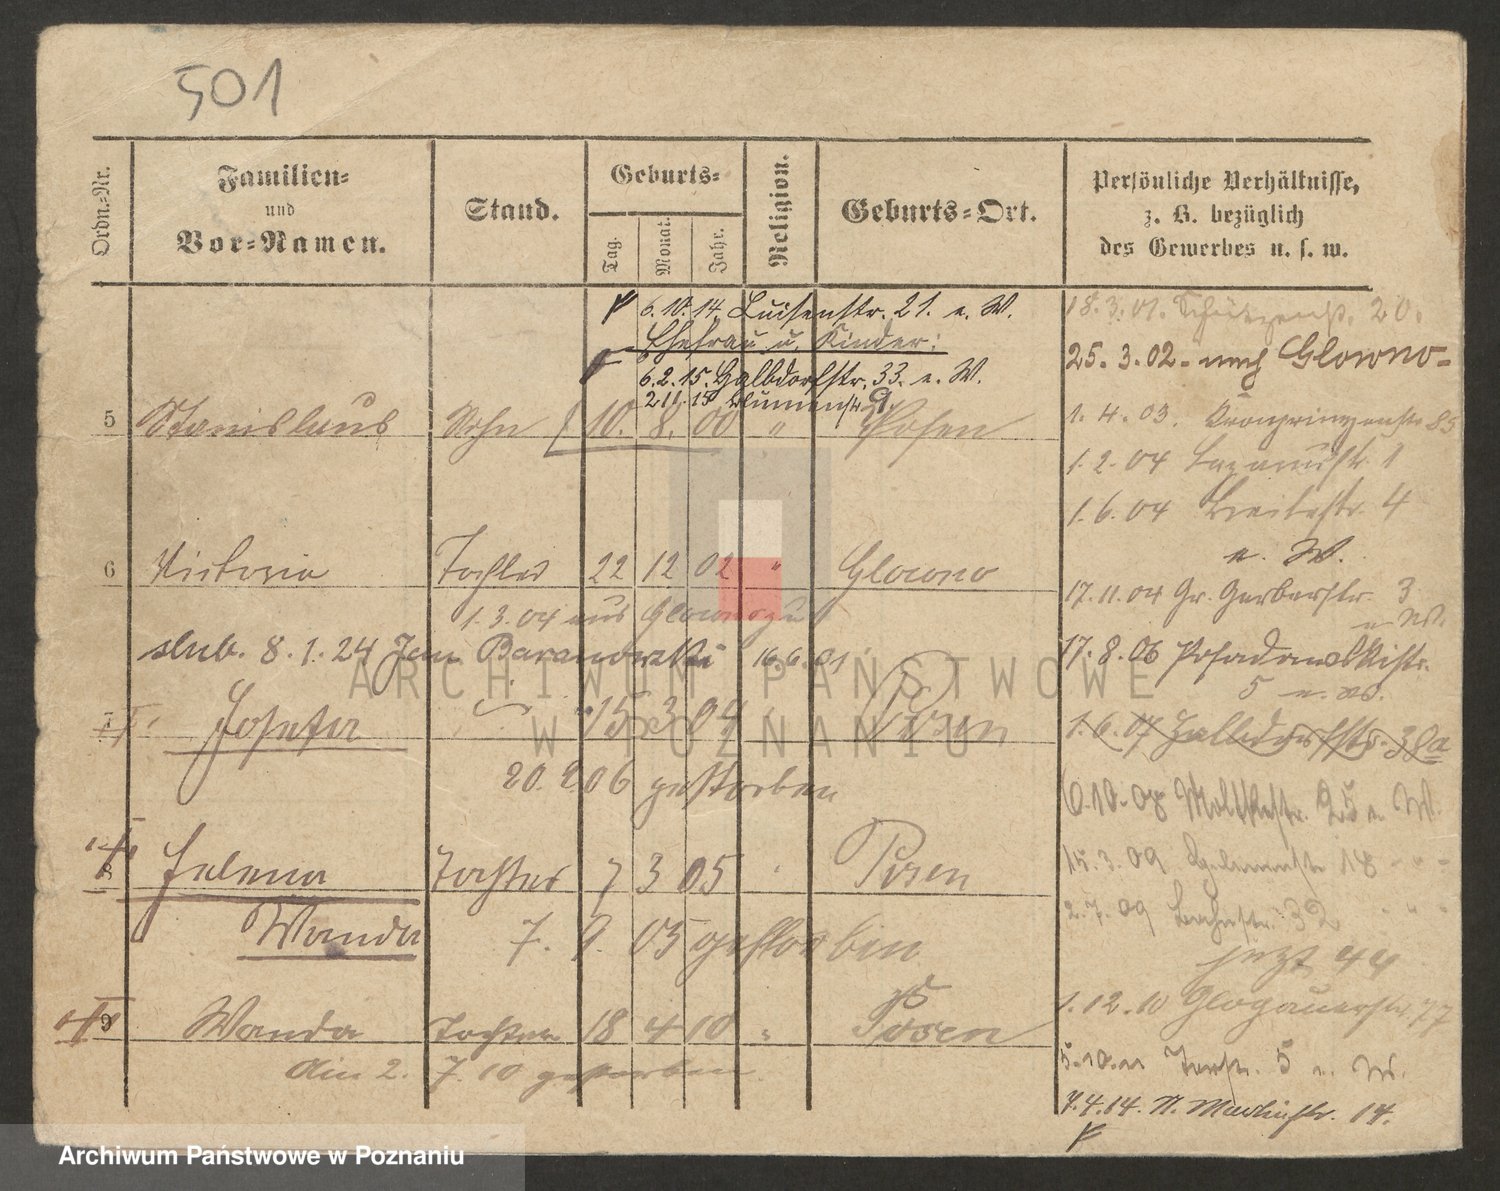 501
Ordn.-Nr.
Familien-
und
Vor-Namen.
Stand.
Geburts-
Tag.
Monat.
Jahr.
Religion.
Geburts-Ort.
Persönliche Verhältnisse,
z. B. bezüglich
des Gewerbes u. s. w.
6.10.14. Luisenstr. 21. e. W.
Ehefrau u. Kinder:
6.2.15. Halbdorfstr. 33. e. W.
2 11. 15 Blumenstr 9.
5 Stanislaus Sohn 10. 8. 00 " Posen
6 Victoria Tochter 22 12 02 " Glowno
1.3.04 aus Glowno zu
slub. 8.1.24 Jan Baranowski 16.6.01
7 Josefa 15 3 04 Posen
20. 2. 06 gestorben
8 Helena Tochter 7 3 05 Posen
Wanda 7. 9. 05 gestorben
9 Wanda Tochter 18 4 10 " Posen
Am 2. 7. 10 gestorben
18.3.01. Schützenstr. 20.
25.3.02. nach Glowno
1.4.03. Kronprinzenstr 85
1.2.04 Lazarusstr 1
1.6.04 Breitestr. 4
e. W.
17.11.04 Gr. Gerberstr. 3
e. W.
17.8.06 Posadowskistr.
5 e. W.
1.6.07 Halbdorfstr. 38a
6.10.08 Moltkestr. 25 e. W.
15.3.09 18 " "
2.7.09 Bachstr. 32 " "
jetzt 44
1.12.10 Glogauerstr. 77
5.10.11 Torstr. 5 e. W.
7.4.14. N. Martinstr. 14.
ARCHIWUM PAŃSTWOWE
W POZNANIU
Archiwum Państwowe w Poznaniu